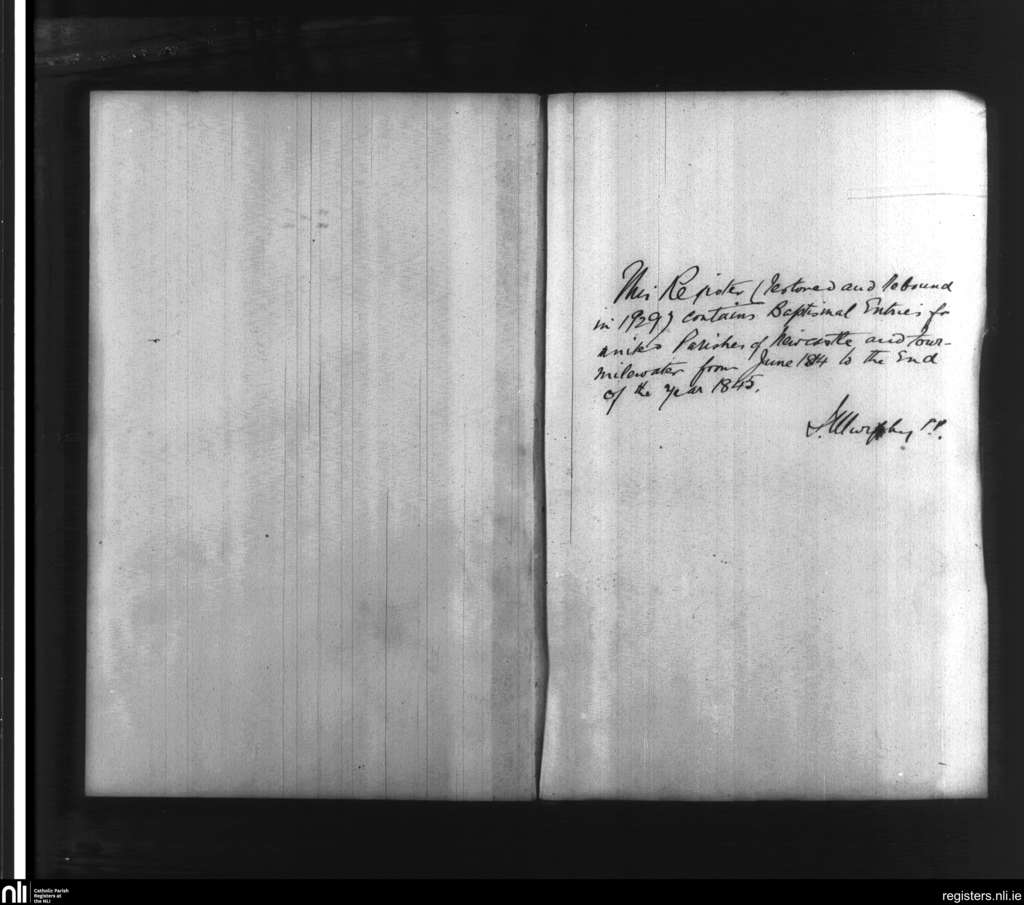 This Register (restored and rebound
in 1929) contains Baptismal Entries for
united Parishes of Newcastle and Four-
milewater from June 1814 to the End
of the year 1845.
J. Murphy P.P.
nli
Catholic Parish
Registers at
the NLI
registers.nli.ie